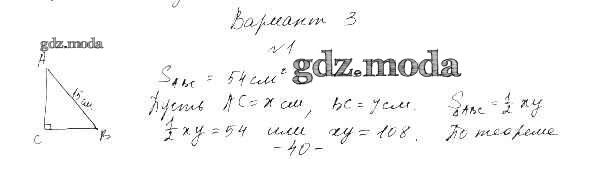 Вариант 3
gdz.moda
№1
A
15см
C
B
S_ABC = 54 см²
gdz.moda
Пусть AC = x см, BC = y см. S_ΔABC = 1/2 xy
1/2 xy = 54 или xy = 108. По теореме
- 40 -